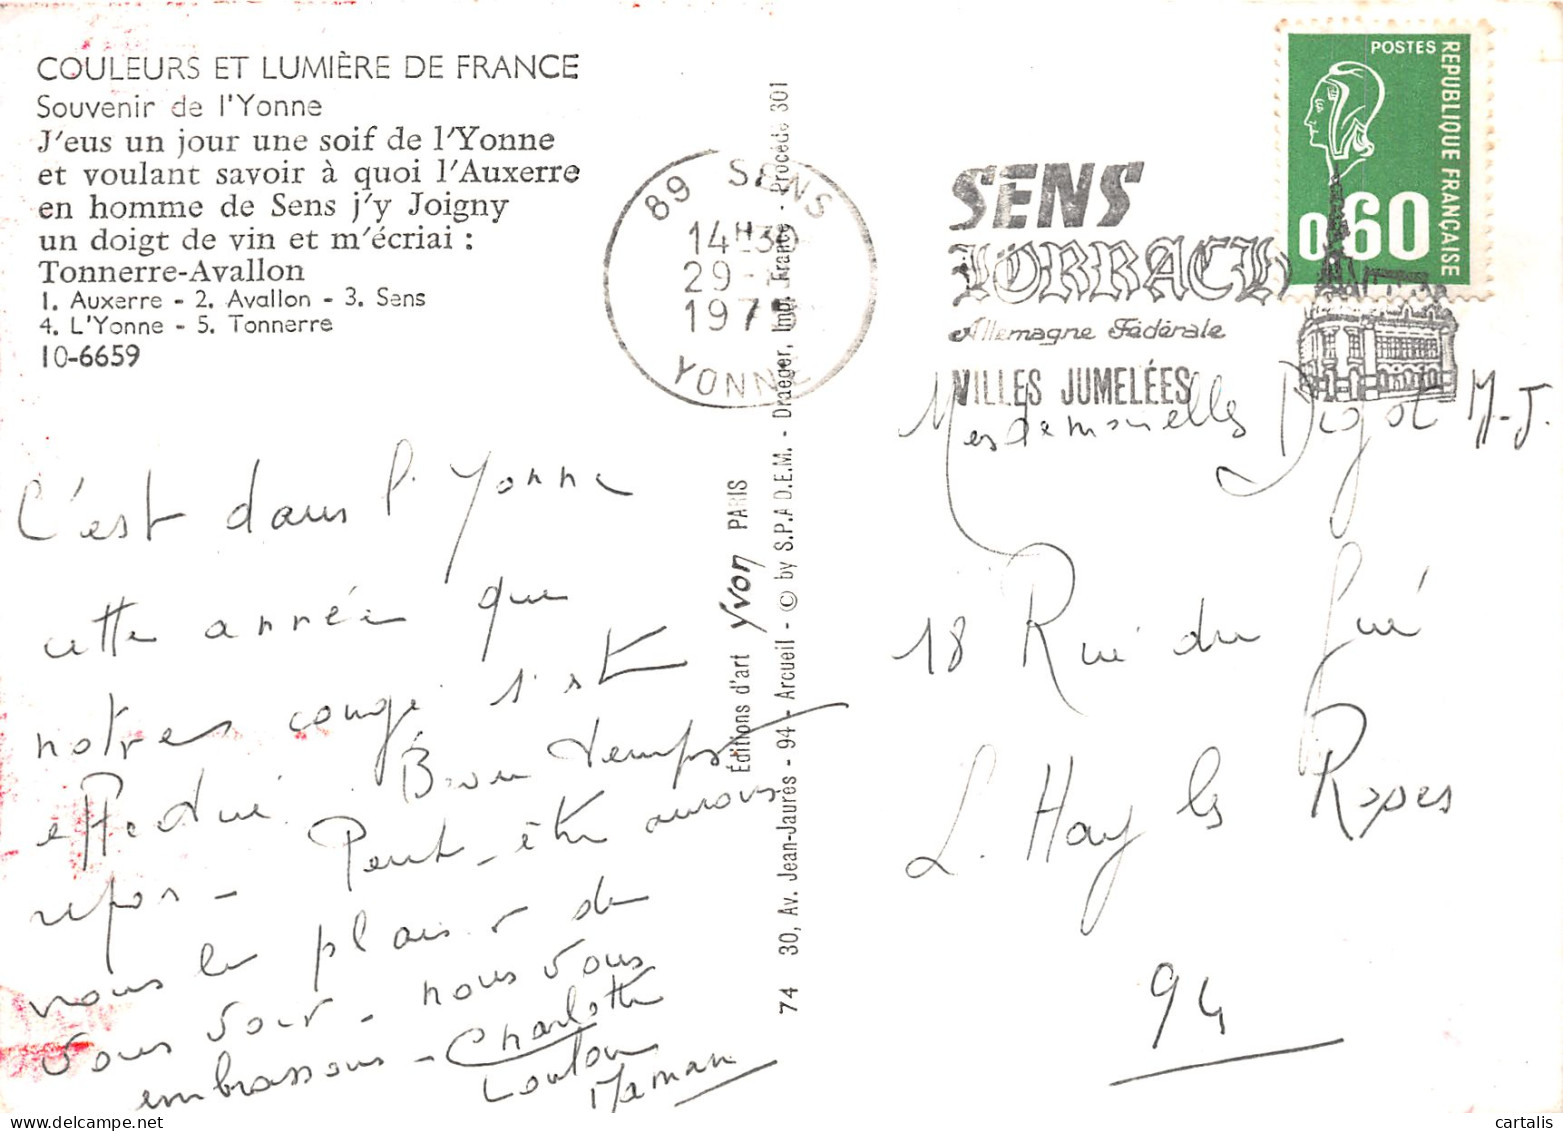 COULEURS ET LUMIÈRE DE FRANCE
Souvenir de l'Yonne
J'eus un jour une soif de l'Yonne
et voulant savoir à quoi l'Auxerre
en homme de Sens j'y Joigny
un doigt de vin et m'écriai :
Tonnerre-Avallon
1. Auxerre - 2. Avallon - 3. Sens
4. L'Yonne - 5. Tonnerre
10-6659
C'est dans l'Yonne
cette année que
notres congé s'est
effectué. Bon temps
repos - Peut-être aurons
nous le plaisir de
vous voir - nous vous
embrassons - Charlotte
Loulou
Maman
Éditions d'art Yvon PARIS
74 30, Av. Jean-Jaurès - 94 - Arcueil - © by S.P.A.D.E.M. - Draeger, Imp. France - Procédé 301
89 SENS
14H30
29 -
197
YONNE
SENS
LORRACH
Allemagne Fédérale
VILLES JUMELÉES
POSTES
REPUBLIQUE FRANÇAISE
0,60
Mesdemoiselles Digot M-J.
18 Rue du Gué
L. Hay les Roses
94
cartalis